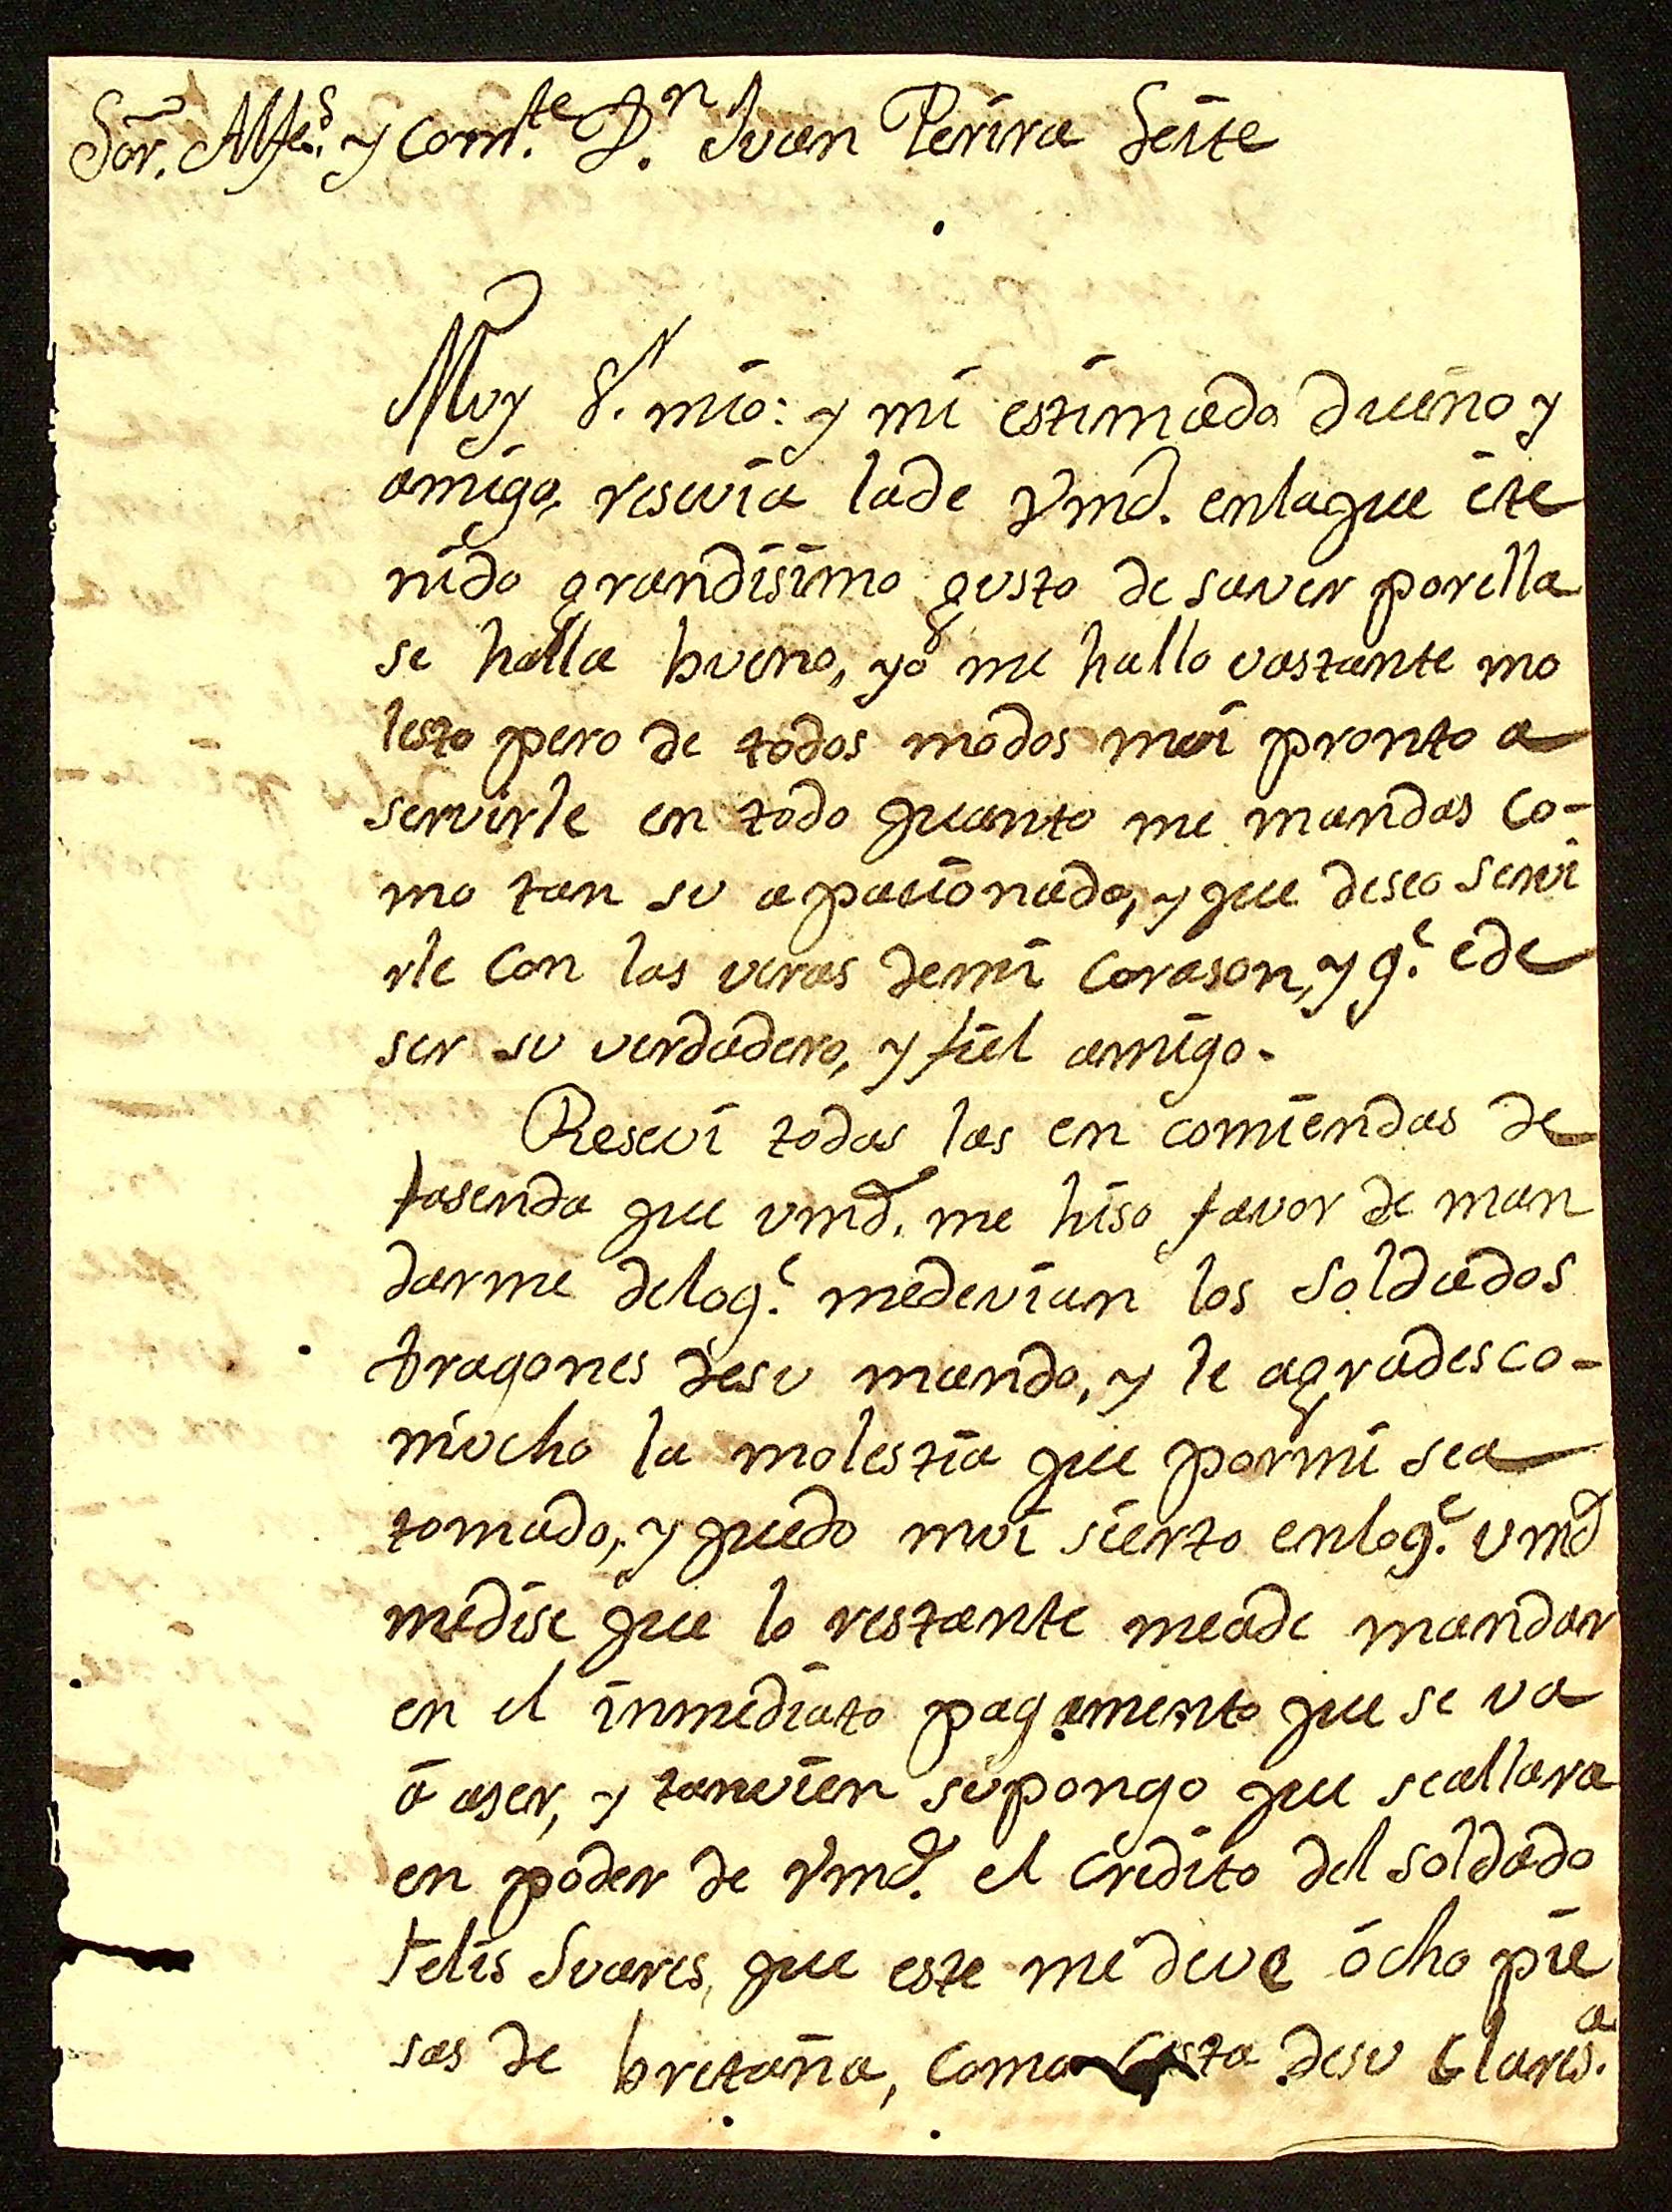 Sor. Alfes. y comte. Dn. Juan Perira Leite
Muy Sr. mio: y mi estimado dueño y
amigo, reseviá lade Vmd. enlaque ete
nido grandisimo gusto de saver porella
se halla bueno, yo me hallo vastante mo
lesto pero de todos modos mui pronto a
servirle en todo quanto me mandas co-
mo tan su apacionado, y que deseo servi
rle con las veras demi corason, y qe. ede
ser su verdadero, y fiel amigo.
Resevi todas las en comiendas de
fasenda que vmd. me hiso favor de man
darme deloqe. medevian los soldados
dragones desu mando, y le agradesco-
mucho la molestia que pormi sea
tomado, y quedo mui sierto enloqe. vmd
medise que lo restante meade mandar
en el inmediato pagamento que se va
á aser, y tanvien supongo que seallara
en poder de Vmd. el credito del soldado
Felis Suares, que este me deve ócho pie
sas de bretaña, como costa desu Claresa.